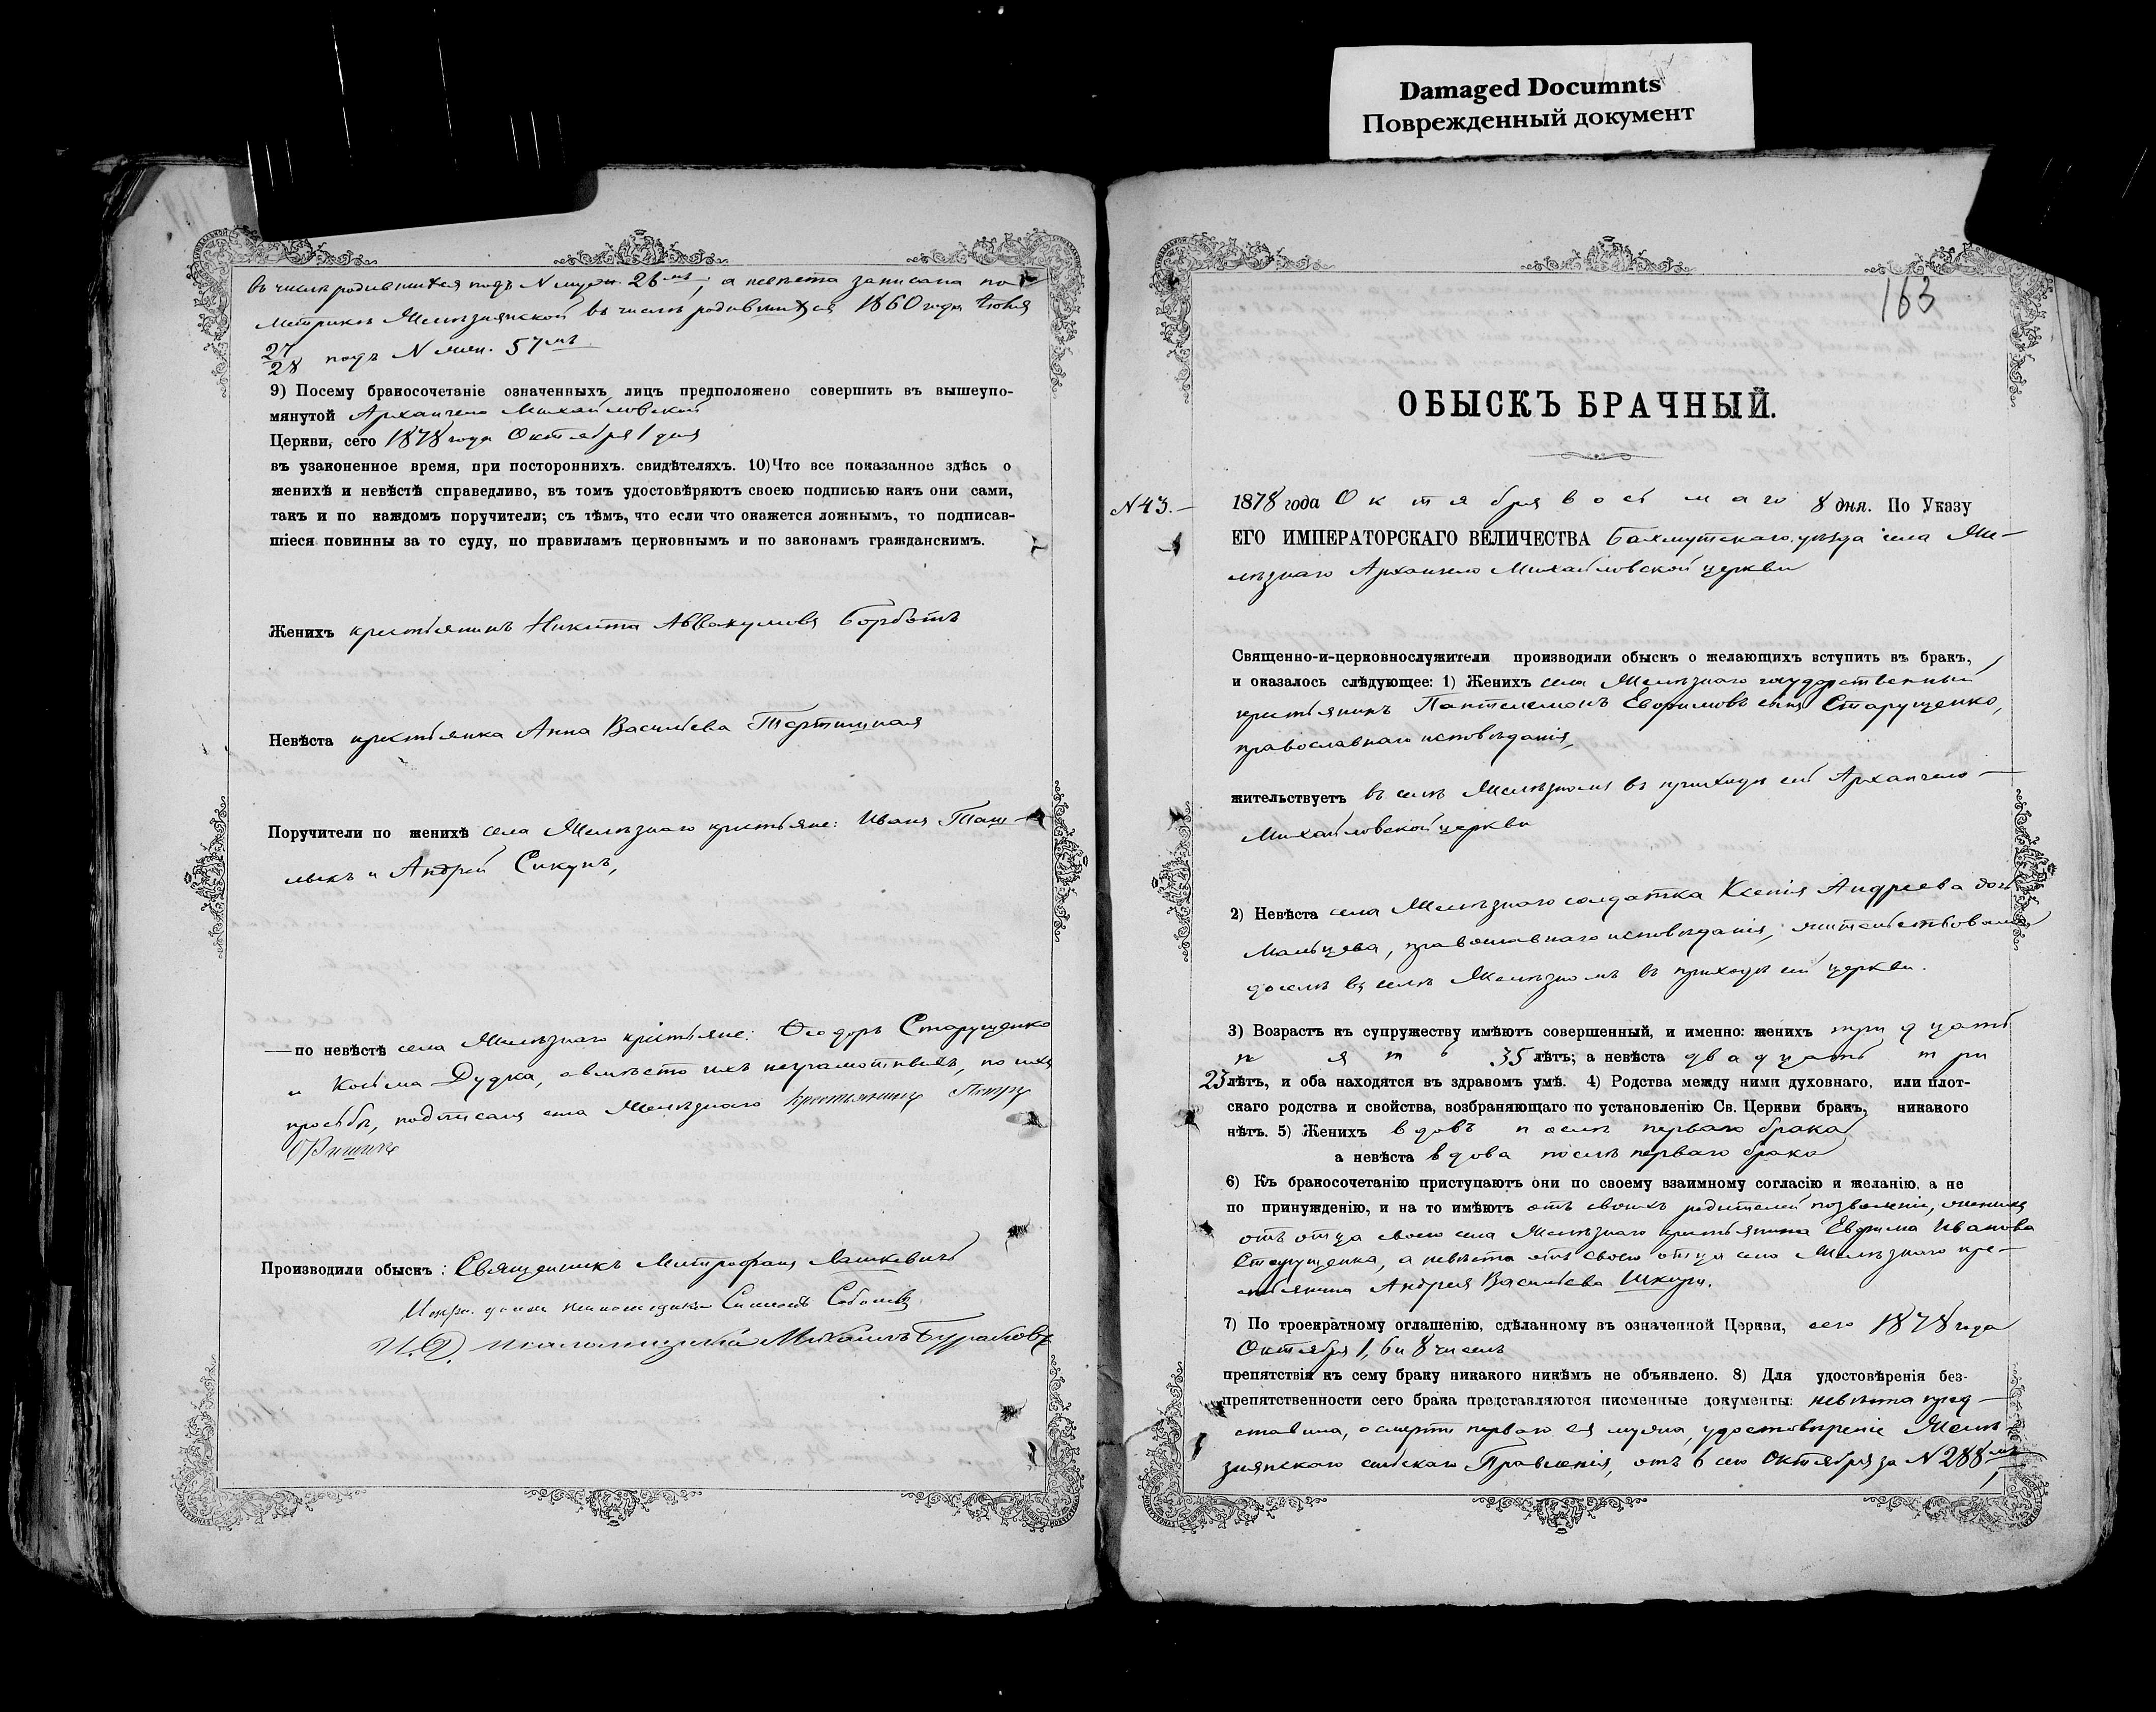 Damaged Documnts
Поврежденный документ
въ числѣ родившихся подъ N муж. 26мъ, а невѣста записана по
Метрикѣ Желѣзнянской въ числѣ родившихся 1860 года Іюня
27/28 подъ N жен. 57мъ
9) Посему бракосочетаніе означенныхъ лицъ предположено совершить въ вышеупо-
мянутой Архангело Михайловской
Церкви, сего 1878 года Октября 1 дня
въ узаконенное время, при постороннихъ. свидѣтеляхъ. 10) Что все показанное здѣсь о
женихѣ и невѣстѣ справедливо, въ томъ удостовѣряютъ своею подписью какъ они сами,
такъ и по каждомъ поручители; съ тѣмъ, что если что окажется ложнымъ, то подписав-
шіеся повинны за то суду, по правиламъ церковнымъ и по законамъ гражданскимъ.
Женихъ крестьянинъ Никита Аввакумовъ
Невѣста крестьянка Анна Васильева Тертишная
Поручители по женихѣ села Желѣзнаго крестьяне: Иванъ Таш-
лыкъ и Андрей Сикунъ,
— по невѣстѣ села Желѣзнаго крестьяне: Ѳеодоръ Старущенко
и Косьма Дудка, а вмѣсто ихъ неграмотныхъ, по ихъ
просьбѣ, подписалъ села Желѣзнаго крестьянинъ
Производили обыскъ: Священникъ Митрофанъ Лашкевичъ
Испр. должн. псаломщика Симеонъ Соболевъ
И.Д. псаломщика Михаилъ Бураковъ
163
ОБЫСКЪ БРАЧНЫЙ.
N 43. — 1878 года Октября восьмаго 8 дня. По Указу
ЕГО ИМПЕРАТОРСКАГО ВЕЛИЧЕСТВА Бахмутскаго уѣзда села Же-
лѣзнаго Архангело Михайловской церкви
Священно-и-церковнослужители производили обыскъ о желающихъ вступить въ бракъ,
и оказалось слѣдующее: 1) Женихъ села Желѣзнаго государственный
крестьянинъ Пантелемонъ Евфимовъ сынъ Старущенко,
православнаго исповѣданія,
жительствуетъ въ селѣ Желѣзномъ въ приходѣ сей Архангело —
Михайловской церкви
2) Невѣста села Желѣзнаго солдатка Ксенія Андреева дочь
Мальцева, православнаго исповѣданія, жительствовала
доселѣ въ селѣ Желѣзномъ въ приходѣ сей церкви.
3) Возрастъ къ супружеству имѣютъ совершенный, и именно: женихъ тридцать
пять 35 лѣтъ; а невѣста двадцать три
23 лѣтъ, и оба находятся въ здравомъ умѣ. 4) Родства между ними духовнаго, или плот-
скаго родства и свойства, возбраняющаго по установленію Св. Церкви бракъ, никакого
нѣтъ. 5) Женихъ вдовъ послѣ перваго брака
а невѣста вдова послѣ перваго брака
6) Къ бракосочетанію приступаютъ они по своему взаимному согласію и желанію, а не
по принужденію, и на то имѣютъ отъ своихъ родителей позволеніе, женихъ
отъ отца своего села Желѣзнаго крестьянина Евфима Иванова
Старущенка, а невѣста отъ своего отца села Желѣзнаго кре-
стьянина Андрея Васильева Шкуры.
7) По троекратному оглашенію, сдѣланному въ означенной Церкви, сего 1878 года
Октября 1, 6 и 8 числъ
препятствія къ сему браку никакого никѣмъ не объявлено. 8) Для удостовѣренія без-
препятственности сего брака представляются писменные документы: невѣста пред-
ставила, о смерти перваго ея мужа, удостовѣреніе Желѣ
знянскаго сельскаго Правленія, отъ 6 сего Октября за N 288мъ,